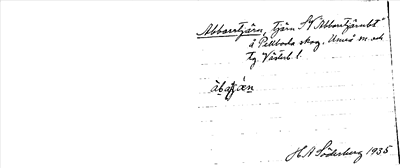 Abborrtjärn, tjärn SV Abborrtjärnbt
å Pellboda skog. Umeå m. ock
tg. Västerb l.
åbatjæn
H A Söderberg 1935